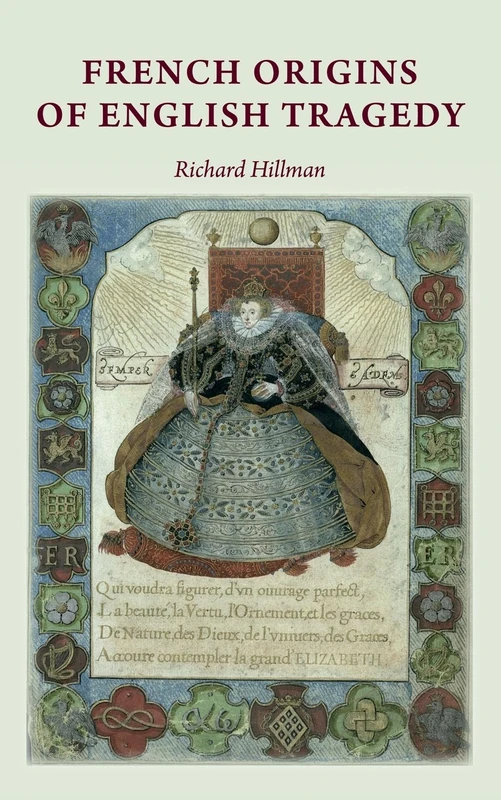 FRENCH ORIGINS
OF ENGLISH TRAGEDY
Richard Hillman
SEMPER
EADEM
ER
ER
Qui voudra figurer, d'vn ouurage parfect,
La beauté, la Vertu, l'Ornement, et les graces,
De Nature, des Dieux, de l'vniuers, des Graces,
Accoure contempler la grand' ELIZABETH